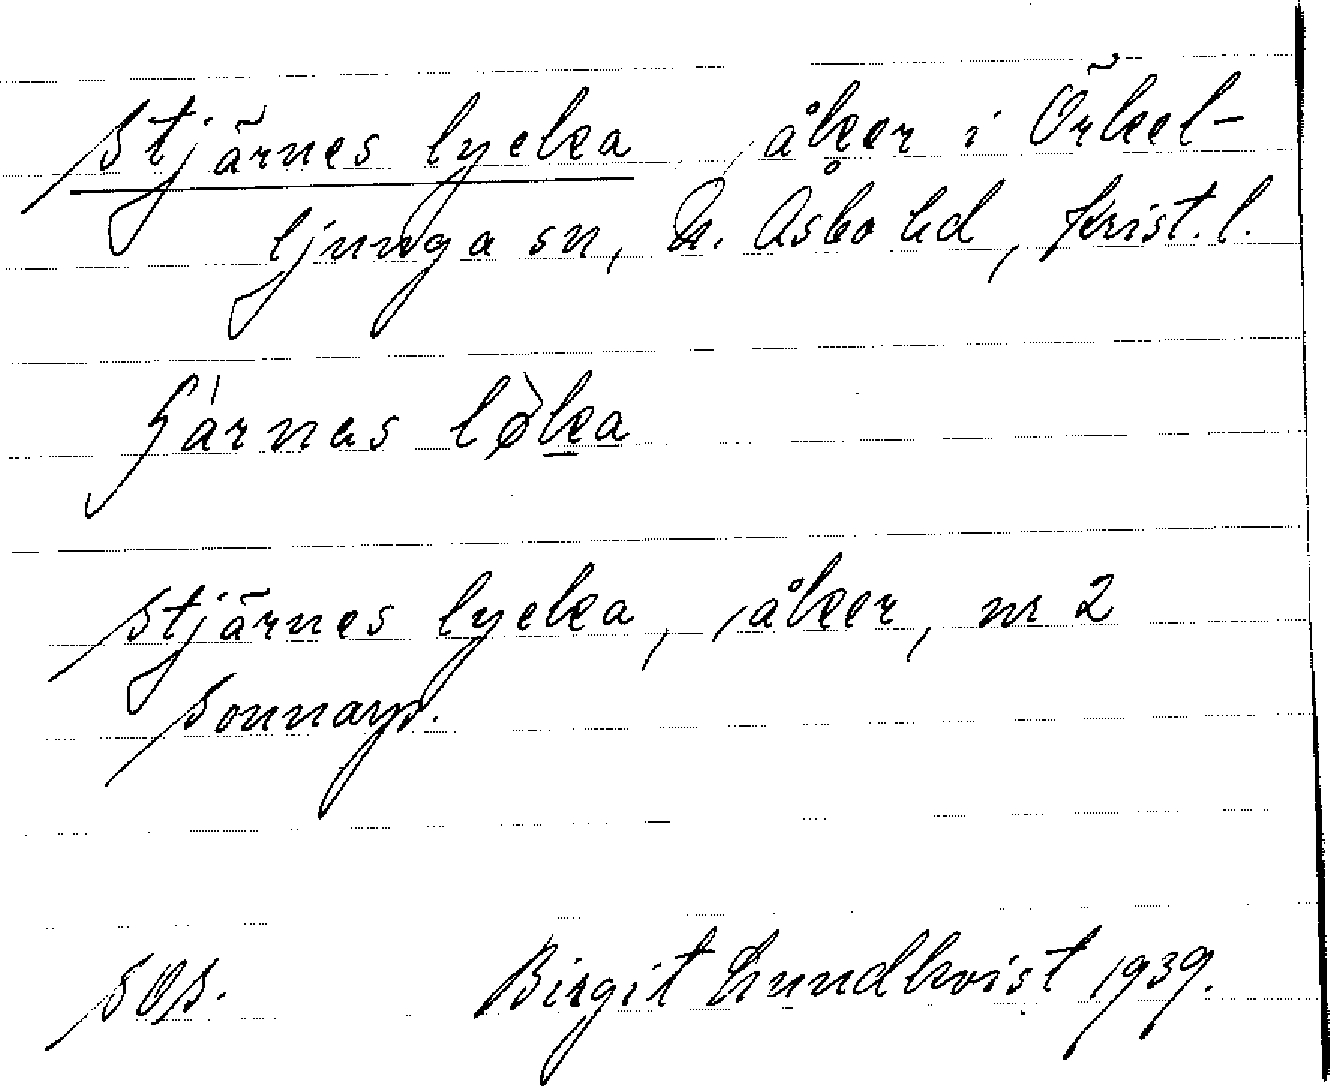 Stjärnes lycka, åker i Örkel-
ljunga sn, N. Åsbo hd, Krist. l.
lycka, åker, nr 2
Stjärnes
Sonnarp.
sos. Birgit Lundkvist 1939.